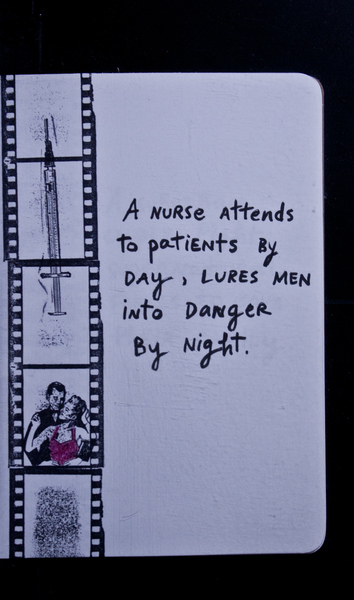 A NURSE Attends
to patiENTS By
DAY, LURES MEN
into DaNgER
By Night.